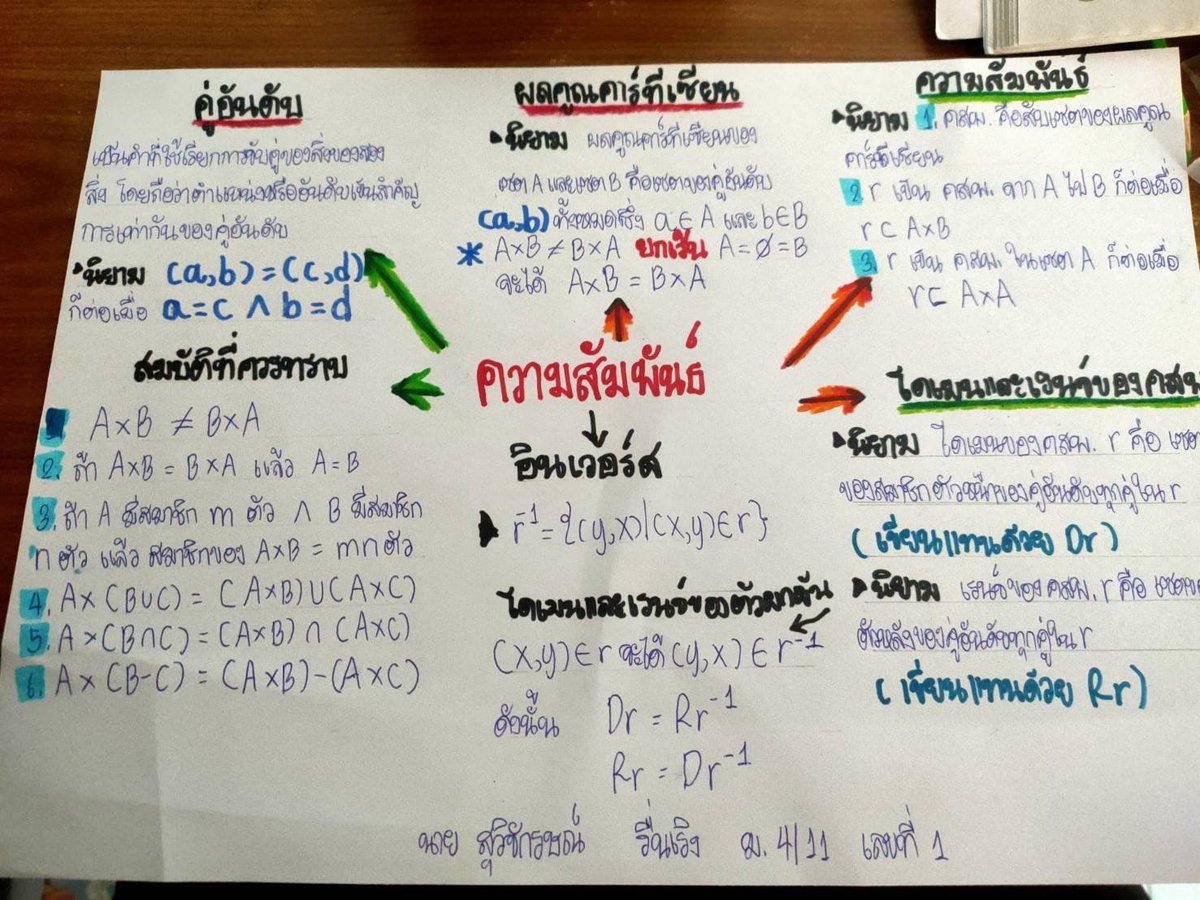 คู่อันดับ
เป็นคำที่ใช้เรียกการจับคู่ของสิ่งของสอง
สิ่ง โดยถือว่าตำแหน่งหรืออันดับเป็นสำคัญ
การเท่ากันของคู่อันดับ
นิยาม (a,b) = (c,d)
ก็ต่อเมื่อ a=c ∧ b=d
ผลคูณคาร์ทีเซียน
นิยาม ผลคูณคาร์ทีเซียนของ
เซต A และเซต B คือเซตของคู่อันดับ
(a,b) ทั้งหมดซึ่ง a∈A และ b∈B
* A×B ≠ B×A ยกเว้น A=∅=B
จะได้ A×B = B×A
ความสัมพันธ์
นิยาม 1. คสพ. คือสับเซตของผลคูณ
คาร์ทีเซียน
2. r เป็น คสพ. จาก A ไป B ก็ต่อเมื่อ
r⊂ A×B
3. r เป็น คสพ. ในเซต A ก็ต่อเมื่อ
r⊂ A×A
ความสัมพันธ์
สมบัติที่ควรทราบ
1 A×B ≠ B×A
2. ถ้า A×B = B×A แล้ว A=B
3. ถ้า A มีสมาชิก m ตัว ∧ B มีสมาชิก
n ตัว แล้ว สมาชิกของ A×B = mn ตัว
4. A×(B∪C) = (A×B)∪(A×C)
5. A×(B∩C) = (A×B)∩(A×C)
6. A×(B-C) = (A×B)-(A×C)
อินเวอร์ส
r⁻¹ = {(y,x)|(x,y)∈r}
โดเมนและเรนจ์ของตัวผกผัน
(x,y)∈r จะได้ (y,x)∈r⁻¹
ดังนั้น Dr = Rr⁻¹
Rr = Dr⁻¹
โดเมนและเรนจ์ของคสพ
นิยาม โดเมนของคสพ. r คือ เซต
ของสมาชิกตัวหน้าของคู่อันดับทุกคู่ใน r
(เขียนแทนด้วย Dr)
นิยาม เรนจ์ของคสพ. r คือ เซตข
ตัวหลังของคู่อันดับทุกคู่ใน r
(เขียนแทนด้วย Rr)
นาย รื่นเริง ม. 4/11 เลขที่ 1